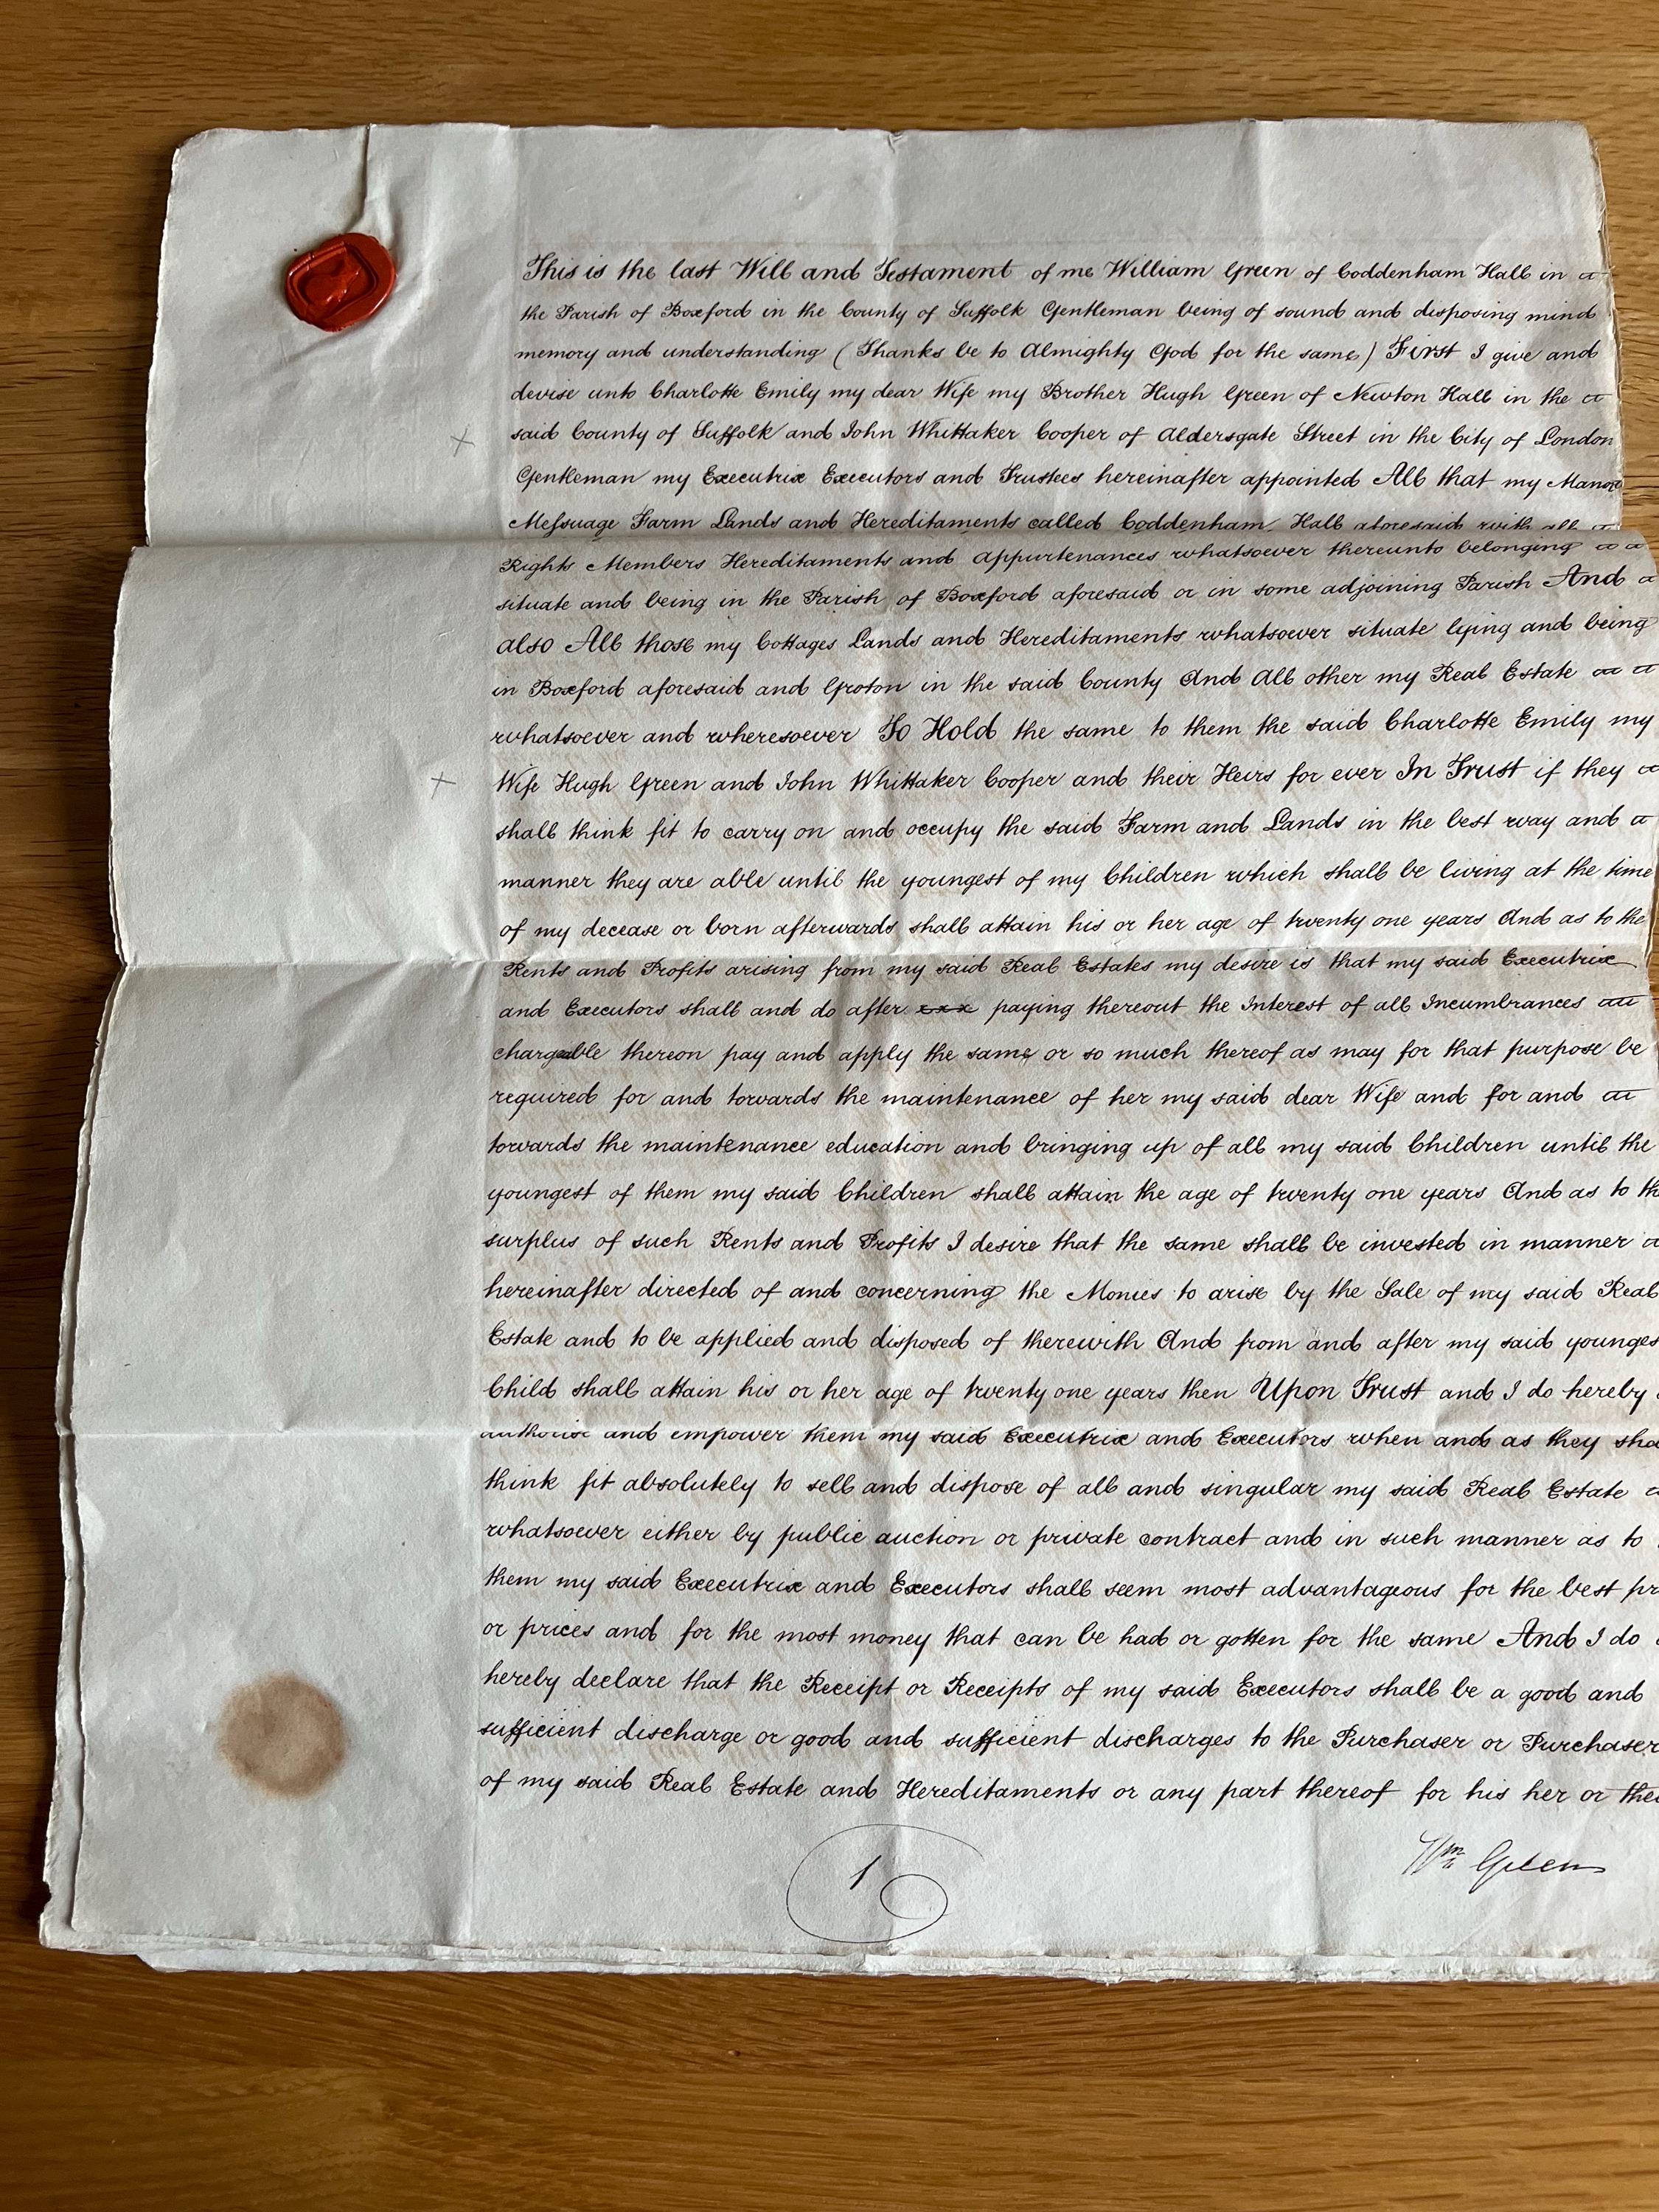 This is the last Will and Testament of me William Green of Coddenham Hall in
the Parish of Boxford in the County of Suffolk Gentleman being of sound and disposing mind
memory and understanding (Thanks be to Almighty God for the same) First I give and
devise unto Charlotte Emily my dear Wife my Brother Hugh Green of Newton Hall in the
said County of Suffolk and John Whittaker Cooper of Aldersgate Street in the City of London
Gentleman my Executrix Executors and Trustees hereinafter appointed All that my Manor
Messuage Farm Lands and Hereditaments called Coddenham Hall aforesaid with all
Rights Members Hereditaments and appurtenances whatsoever thereunto belonging
situate and being in the Parish of Boxford aforesaid or in some adjoining Parish And
also All those my Cottages Lands and Hereditaments whatsoever situate lying and being
in Boxford aforesaid and Groton in the said County And All other my Real Estate
whatsoever and wheresoever To Hold the same to them the said Charlotte Emily my
Wife Hugh Green and John Whittaker Cooper and their Heirs for ever In Trust if they
shall think fit to carry on and occupy the said Farm and Lands in the best way and
manner they are able until the youngest of my Children which shall be living at the time
of my decease or born afterwards shall attain his or her age of twenty one years And as to the
Rents and Profits arising from my said Real Estates my desire is that my said Executrix
and Executors shall and do after xxx paying thereout the Interest of all Incumbrances
chargeable thereon pay and apply the same or so much thereof as may for that purpose be
required for and towards the maintenance of her my said dear Wife and for and
towards the maintenance education and bringing up of all my said Children until the
youngest of them my said Children shall attain the age of twenty one years And as to th
surplus of such Rents and Profits I desire that the same shall be invested in manner
hereinafter directed of and concerning the Monies to arise by the Sale of my said Real
Estate and to be applied and disposed of therewith And from and after my said younges
Child shall attain his or her age of twenty one years then Upon Trust and I do hereby
authorise and empower them my said Executrix and Executors when and as they sha
think fit absolutely to sell and dispose of all and singular my said Real Estate
whatsoever either by public auction or private contract and in such manner as to
them my said Executrix and Executors shall seem most advantageous for the best pr
or prices and for the most money that can be had or gotten for the same And I do
hereby declare that the Receipt or Receipts of my said Executors shall be a good and
sufficient discharge or good and sufficient discharges to the Purchaser or Purchaser
of my said Real Estate and Hereditaments or any part thereof for his her or thei
Wm Green
1